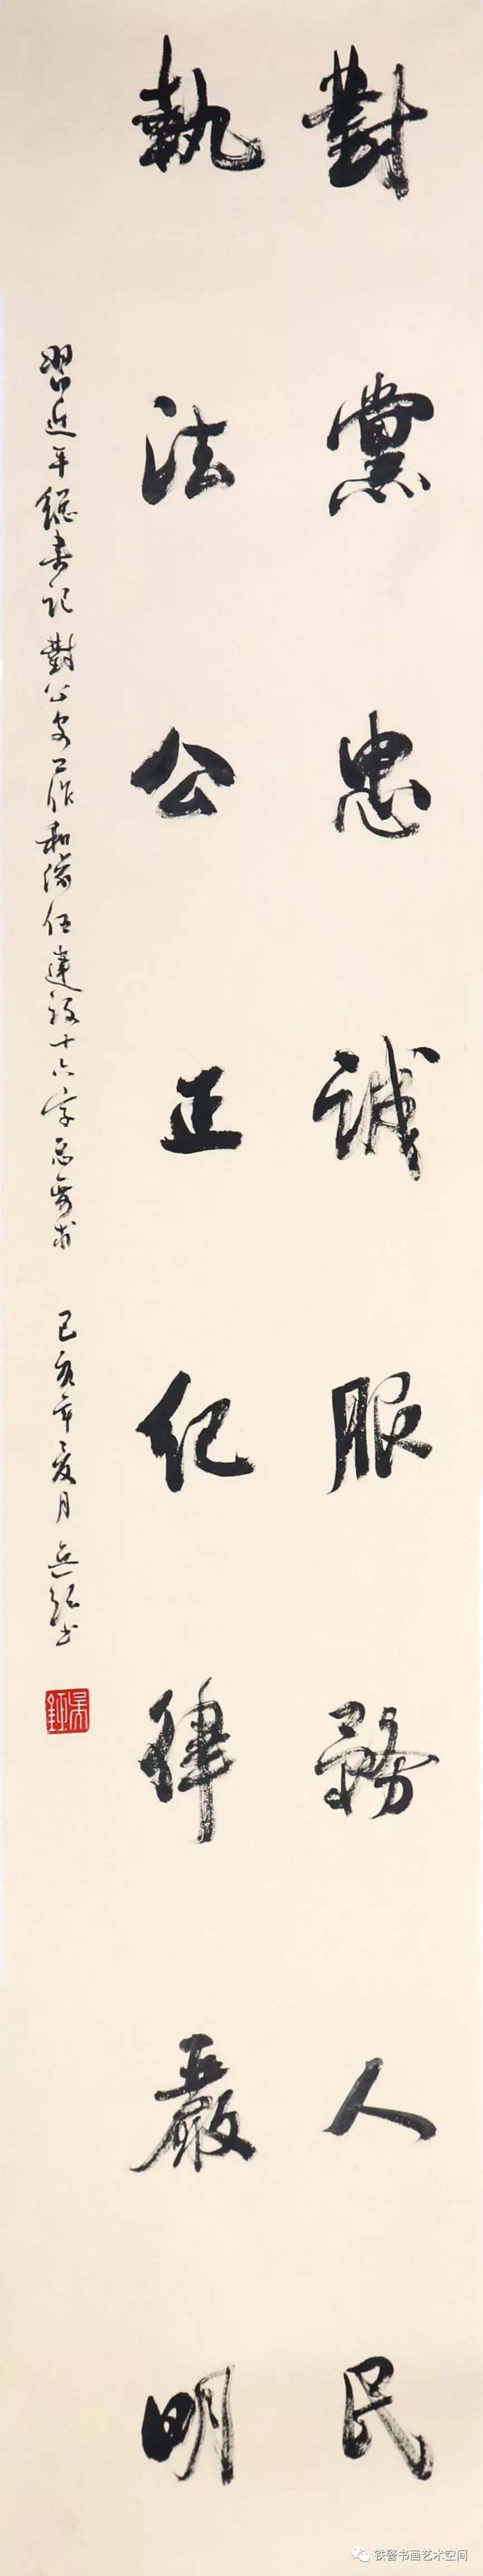 對黨忠誠服務人民
執法公正纪律嚴明
習近平總書記對公安工作和隊伍建設十六字总要求 己亥年夏月 吴钰书
铁警书画艺术空间